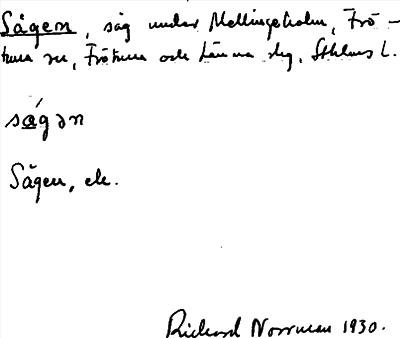 Sågen, såg under Mellingeholm, Frö-
tuna sn, Frötuna och Länna slg, Sthlms L.
sågən
Sågen, ek.
Rickard Norrman 1930.